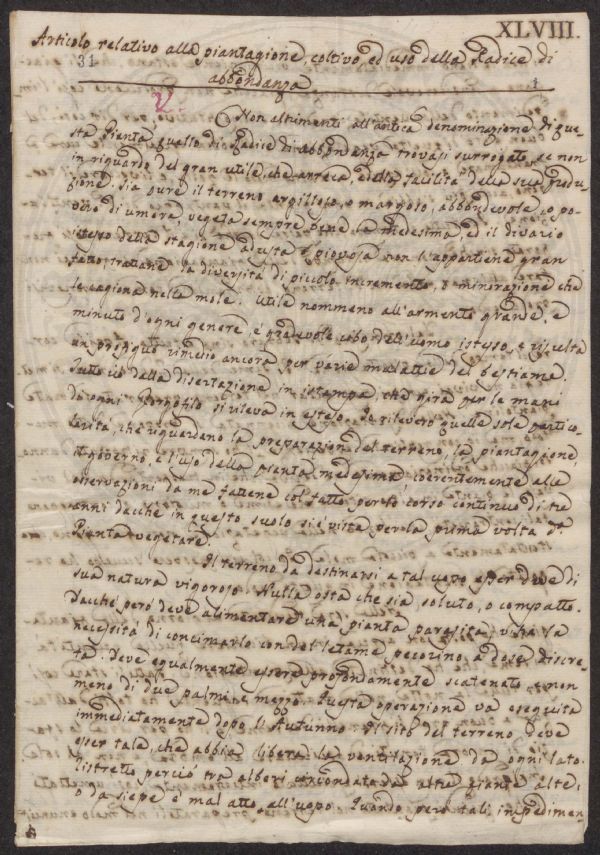 XLVIII.
Articolo relativo alla piantagione, coltivo, ed uso della Radice di
31
abbondanza
1
V.
Non altrimenti all'antica denominazione di que-
sta Pianta, quello di Radice di abbondanza trovasi surrogato, se non
in riguardo del gran utile, che arreca, e della facilità della sua produ-
zione. Sia pure il terreno argilloso, o margoso, abbondevole, o po-
vero di umore, vegeta sempre bene la medesima, ed il divario
istesso della stagione adusta o piovosa non l'appartiene gran
fatto, trattane la diversità di piccolo incremento, o minorazione che
le cagiona nella mole. Utile nommeno all'armento grande, e
minuto d'ogni genere, è gradevole cibo dell'uomo istesso, e risulta
un proprio rimedio ancora per varie malattie del bestiame.
Tutto ciò dalla disertazione in istampa, che gira per le mani
da ogni si rileva in esteso. Io rileverò quelle sole partico-
larità, che riguardano la preparazion del terreno, la piantagione,
il governo, e l'uso della pianta medesima coerentemente alle
osservazioni da me fattene col fatto per lo corso continuo di tre
anni dacchè in questo suolo si è vista per la prima volta da.
Pianta vegetare.
Il terreno da destinarsi a tal uopo esser deve di
sua natura vigoroso. Nulla osta che sia, soluto, o compatto.
Dacchè però deve alimentare una pianta parasita, v'ha la
necessità di concimarlo con del letame pecorino a dose discre-
ta. Deve egualmente essere profondamente scatenato, e non
meno di due palmi e mezzo. Questa operazione va eseguita
immediatamente dopo l'Autunno. Il sito del terreno, deve
esser tale, che abbia libera la ventilazione da ogni lato.
Ristretto perciò tra alberi circondato da altre piante alte,
o da siepe è mal atto all'uopo. Quando però tali impedimen-